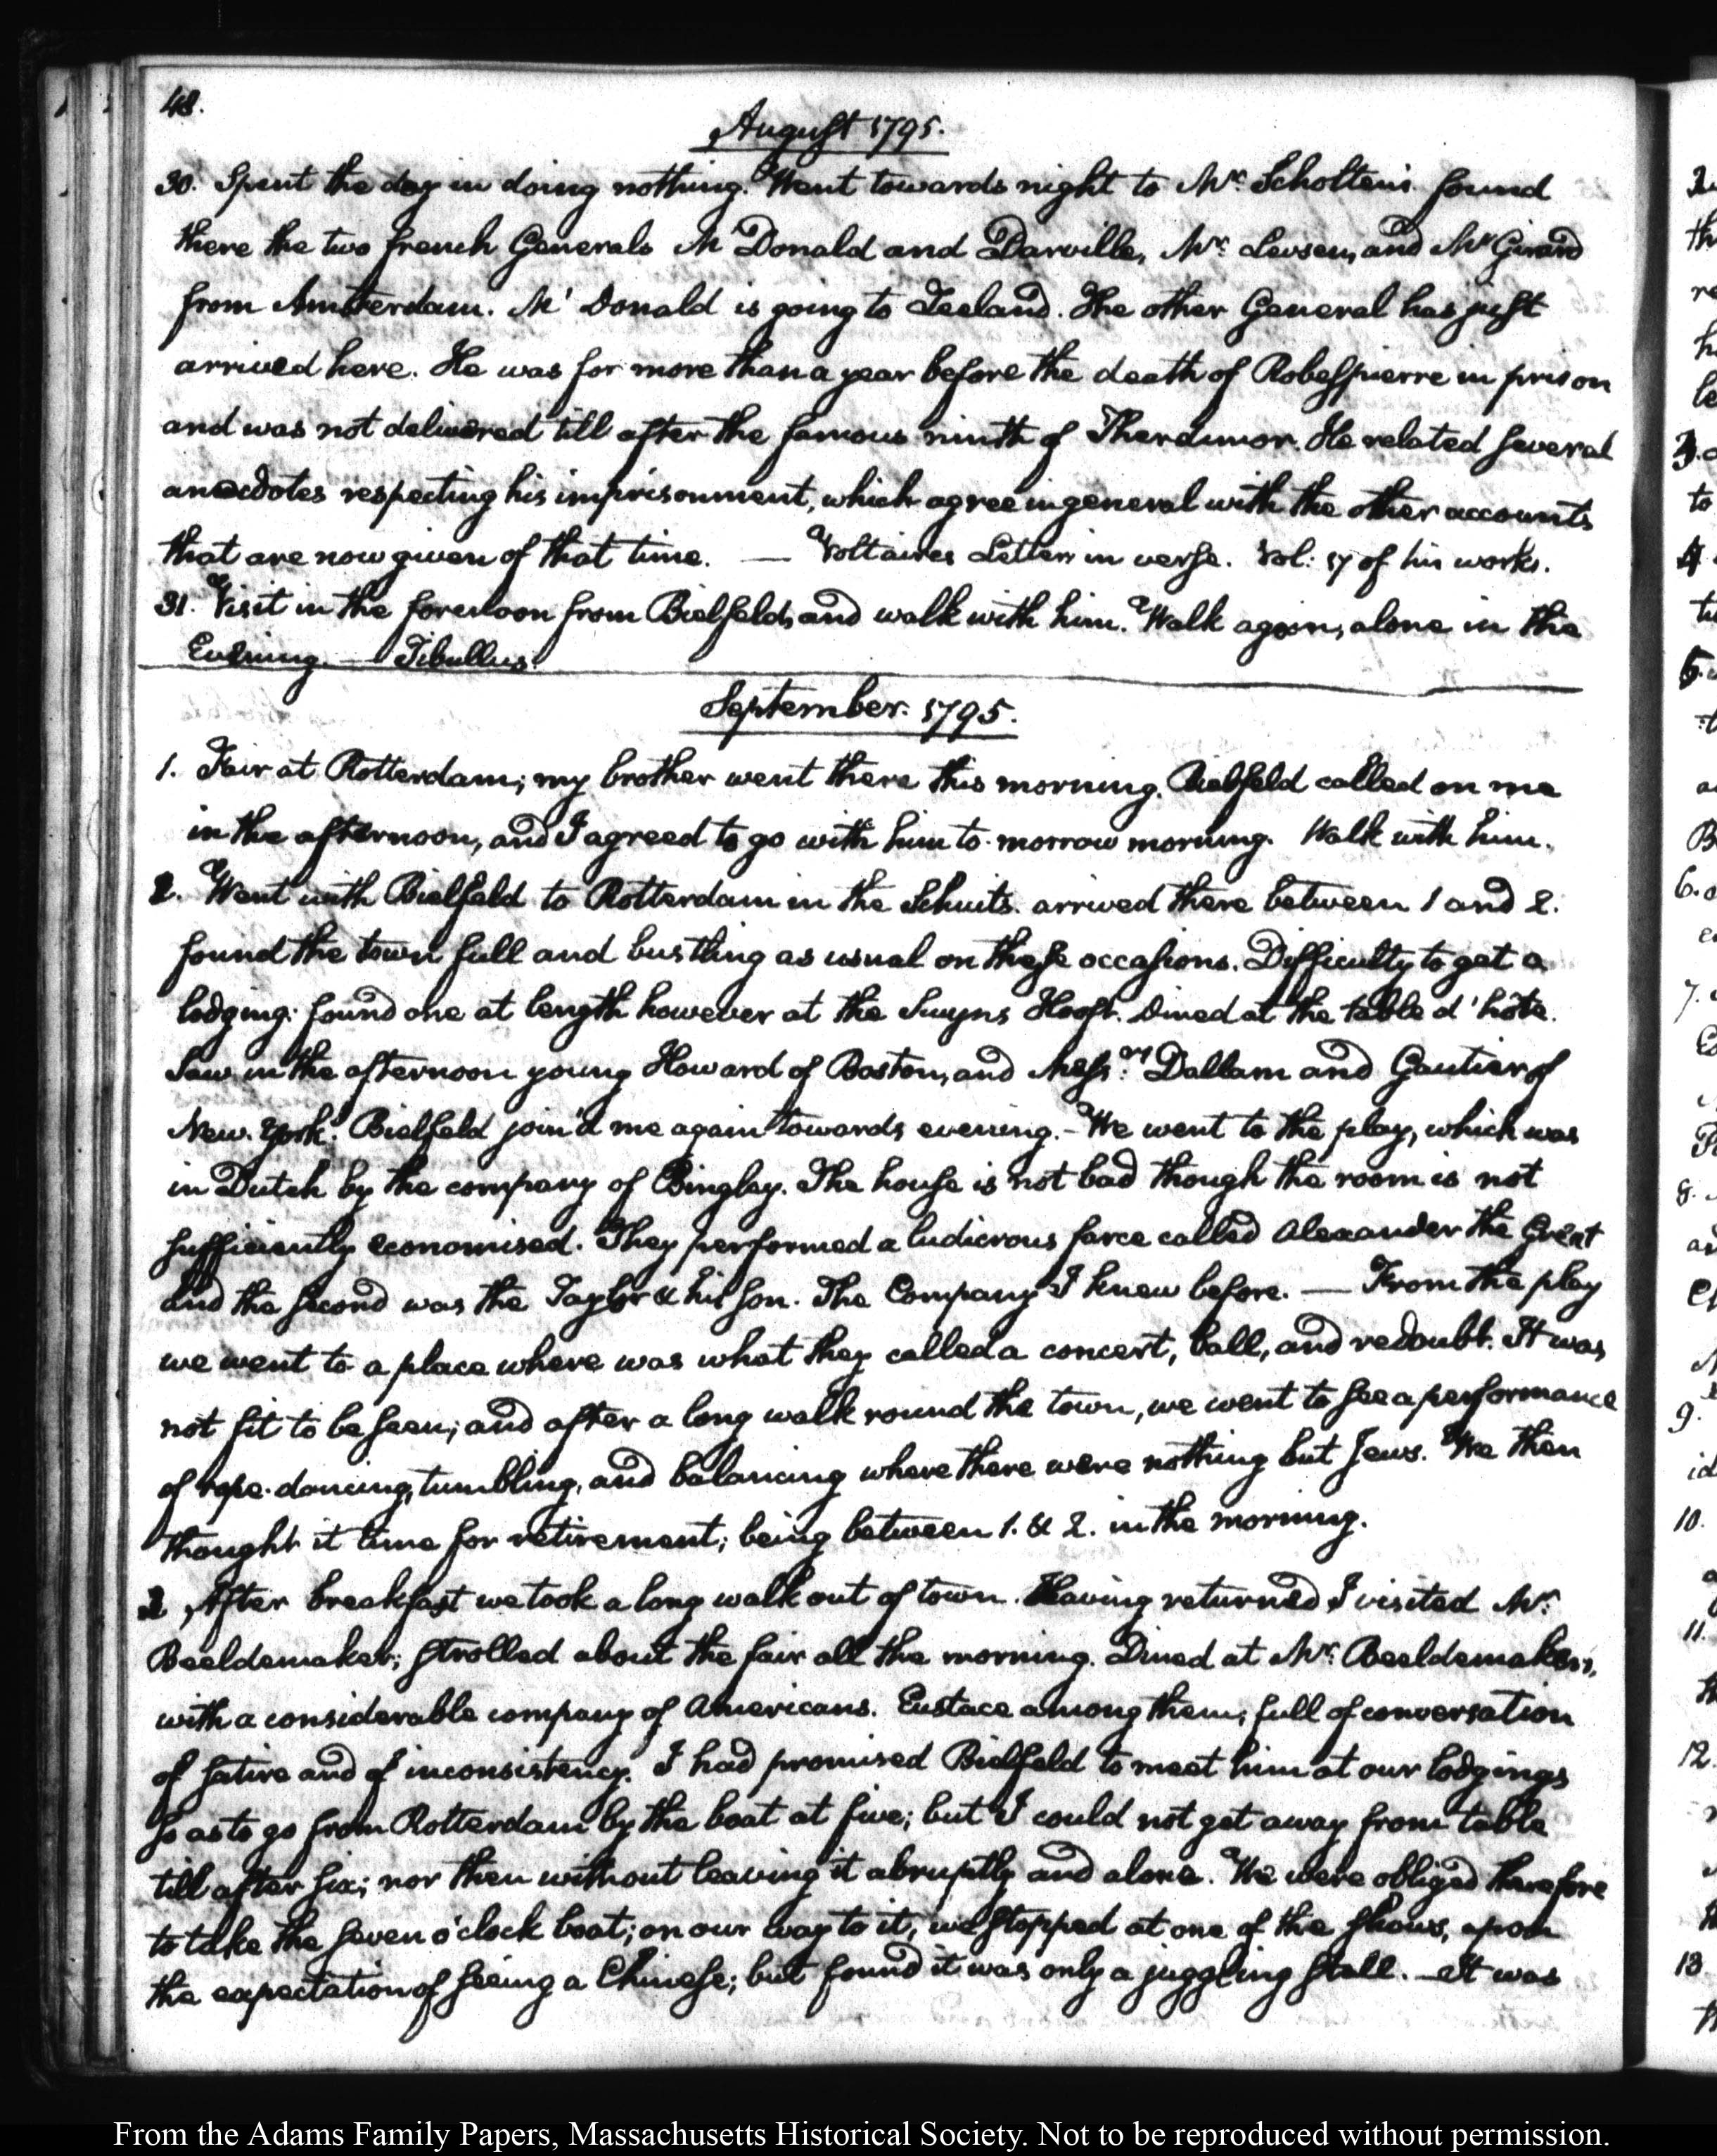 48.
August 1795.
30. Spent the day in doing nothing. Went towards night to Mr: Scholten's. found
there the two french Generals Mc Donald and Darville, Mr: Levsen, and Mr Girard
from Amsterdam. Mc' Donald is going to Zeeland. The other General has just
arrived here. He was for more than a year before the death of Robespierre in prison
and was not delivered till after the famous ninth of Therdimor. He related several
anecdotes respecting his imprisonment, which agree in general with the other accounts
that are now given of that time. — Voltaires Letters in verse. Vol: 17 of his works.
31. Visit in the forenoon from Bielfeld, and walk with him. Walk again, alone in the
Evening. — Tibullus.
September. 1795.
1. Fair at Rotterdam; my brother went there this morning. Bielfeld called on me
in the afternoon, and I agreed to go with him to-morrow morning. Walk with him.
2. Went with Bielfeld to Rotterdam in the Schuits. arrived there between 1 and 2.
found the town full and bustling as usual on these occasions. Difficulty to get a
lodging: found one at length however at the Swyns Hooft. Dined at the table d'hôte.
Saw in the afternoon young Howard of Boston, and Messrs: Dallam and Gautier of
New-York. Bielfeld join'd me again towards evening. - We went to the play, which was
in Dutch by the company of Bingley. The house is not bad though the room is not
sufficiently economised. They performed a ludicrous farce called Alexander the Great
and the second was the Taylor & his son. The Company I knew before. — From the play
we went to a place where was what they called a concert, ball, and redoubt. It was
not fit to be seen; and after a long walk round the town, we went to see a performance
of rope-dancing, tumbling, and balancing where there were nothing but Jews. We then
thought it time for retirement; being between 1. & 2. in the morning.
3 After breakfast we took a long walk out of town. Having returned I visited Mr:
Beeldemaker; strolled about the fair all the morning. Dined at Mr: Beeldemaker's,
with a considerable company of Americans. Eustace among them; full of conversation
of satire and of inconsistency. I had promised Bielfeld to meet him at our lodgings
so as to go from Rotterdam by the boat at five; but I could not get away from table
till after six; nor then without leaving it abruptly and alone. We were obliged therefore
to take the seven o'clock boat; on our way to it, we stopped at one of the shows, upon
the expectation of seeing a Chinese; but found it was only a juggling stall. — It was
From the Adams Family Papers, Massachusetts Historical Society. Not to be reproduced without permission.